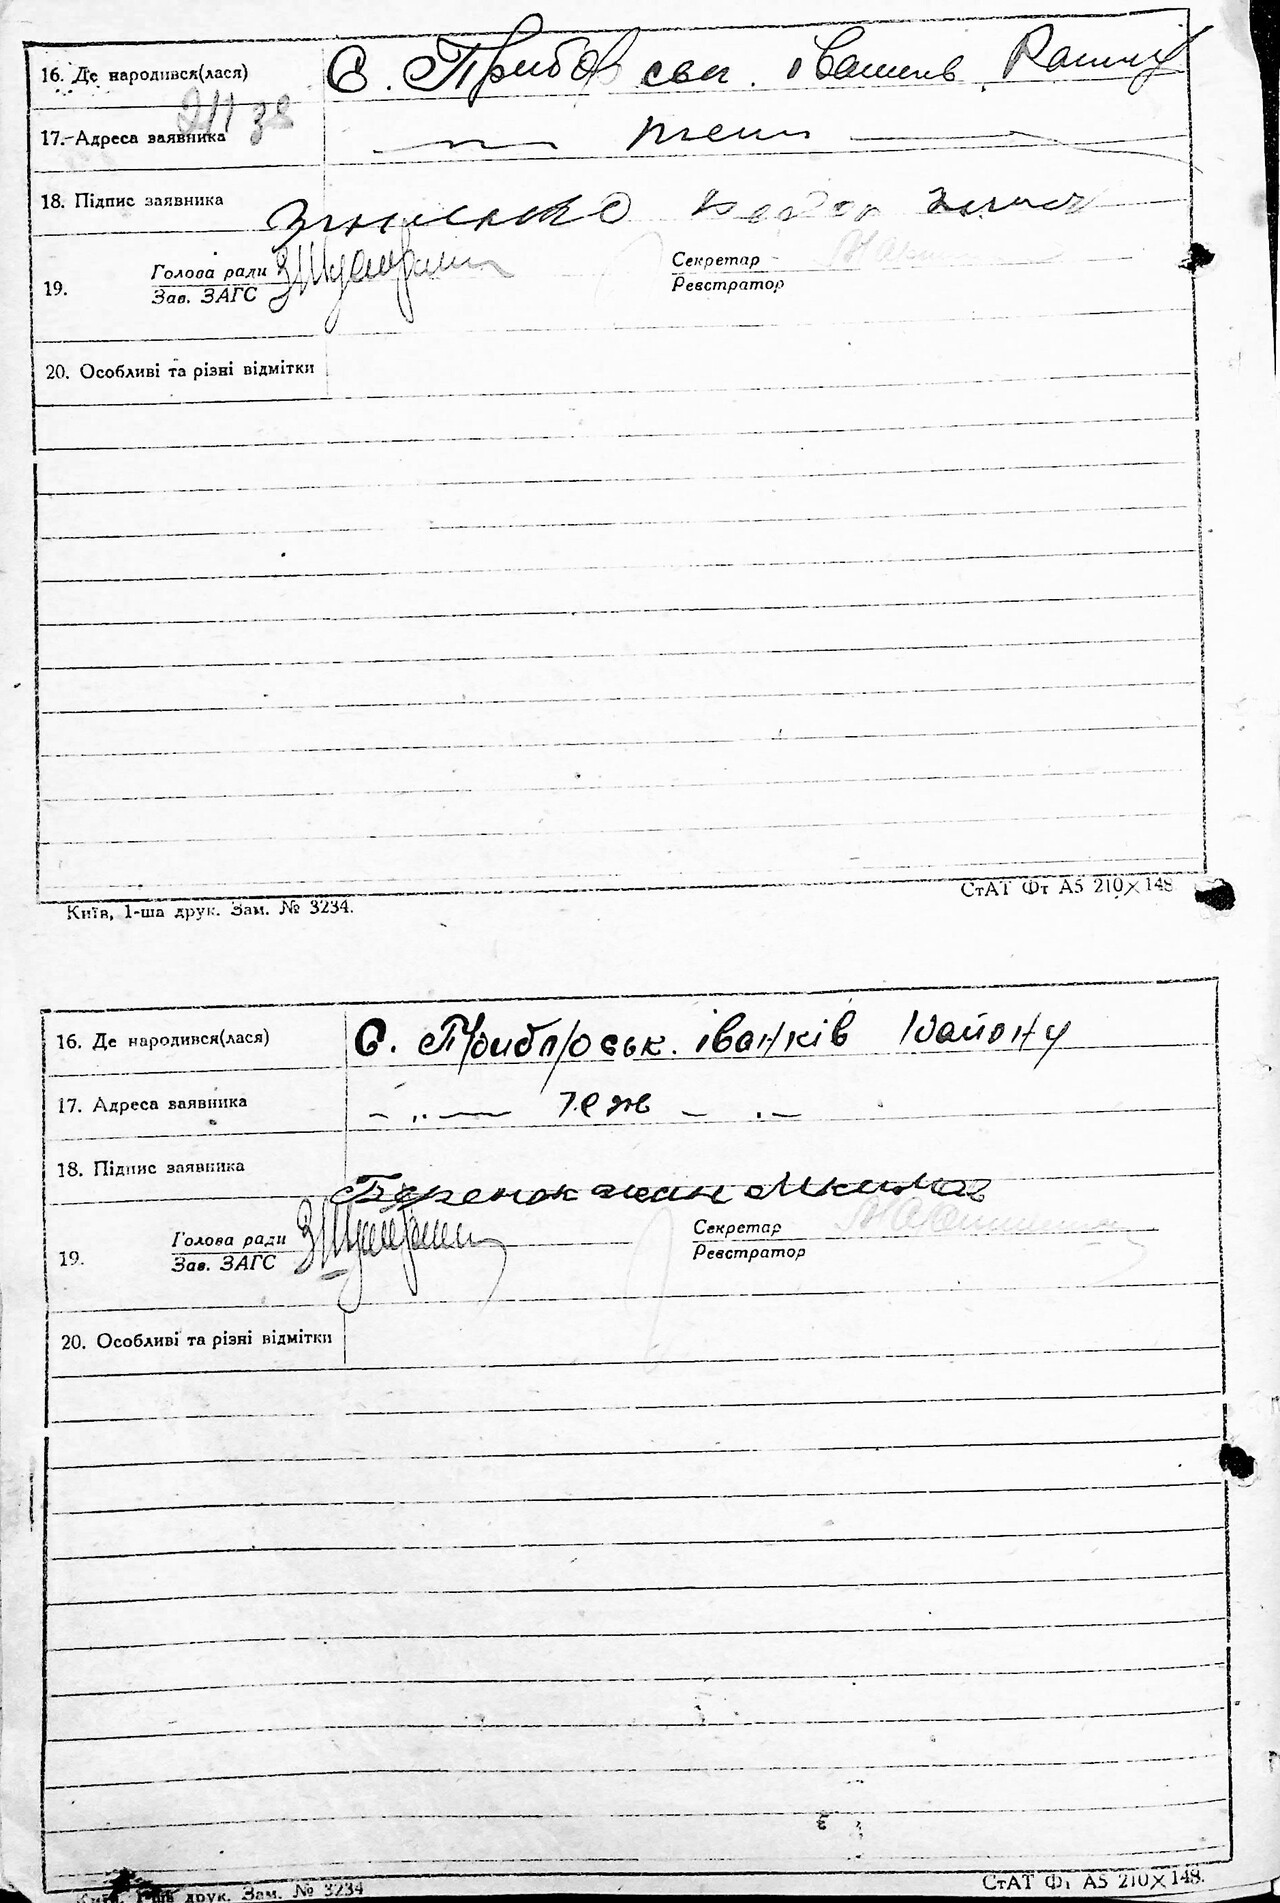 16. Де народився(лася) С. Приборськ. Іванків Району
17. Адреса заявника теж
18. Підпис заявника
Голова ради Секретар
19.
Зав. ЗАГС Реєстратор
20. Особливі та різні відмітки
СтАТ Фт А5 210×148
Київ, 1-ша друк. Зам. № 3234.
16. Де народився(лася) С. Приборськ. Іванків Району
17. Адреса заявника теж
18. Підпис заявника
Голова ради Секретар
19.
Зав. ЗАГС Реєстратор
20. Особливі та різні відмітки
Київ, 1-ша друк. Зам. № 3234 СтАТ Фт А5 210×148.